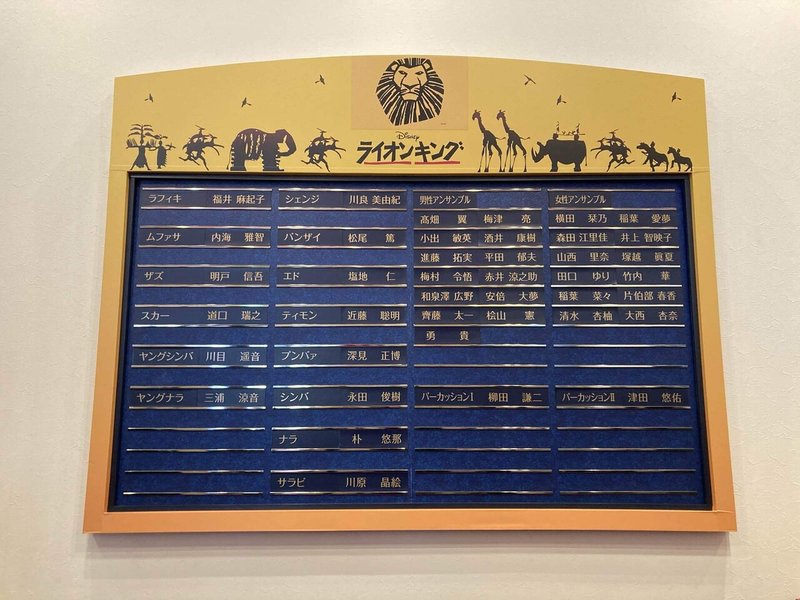 Disney
ライオンキング
ラフィキ 福井 麻起子
ムファサ 内海 雅智
ザズ 明戸 信吾
スカー 道口 瑞之
ヤングシンバ 川目 遥音
ヤングナラ 三浦 涼音
シェンジ 川良 美由紀
バンザイ 松尾 篤
エド 塩地 仁
ティモン 近藤 聡明
プンバァ 深見 正博
シンバ 永田 俊樹
ナラ 朴 悠那
サラビ 川原 晶絵
男性アンサンブル
髙畑 翼 梅津 亮
小出 敏英 酒井 康樹
進藤 拓実 平田 郁夫
梅村 令悟 赤井 涼之助
和泉澤 広野 安倍 大夢
齊藤 太一 桧山 憲
勇 貴
パーカッションⅠ 柳田 謙二
女性アンサンブル
横田 栞乃 稲葉 愛夢
森田 江里佳 井上 智映子
山西 里奈 塚越 眞夏
田口 ゆり 竹内 華
稲葉 菜々 片伯部 春香
清水 杏柚 大西 杏奈
パーカッションⅡ 津田 悠佑